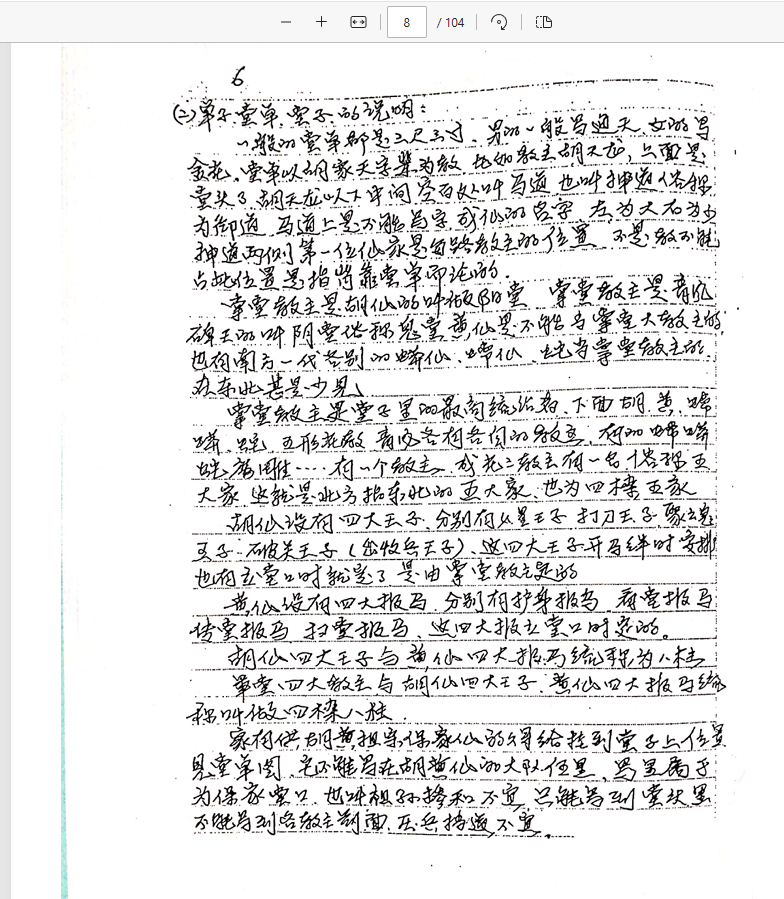 8 / 104
6
(二)单子堂单、堂子的说明：
一般的堂单都是三尺三寸、男的一般写通天、女的写
金花、堂单以胡家天字辈为教、比如教主胡天龙，上面是
堂头了、胡天龙以下中间空白处叫马道也叫神道俗称
为御道、马道上是不能写字或仙的名字、左为大右为少
神道两侧第一位仙家是每路教主的位置、不是教不能
占此位置是指背靠堂单而论的.
掌堂教主是胡仙的叫做阳堂 掌堂教主是
碑王的叫阴堂俗称鬼堂黄仙是不能当掌堂大教主的
也有南方一代各别的蟒仙、仙、当掌堂教主的.
在东北甚是少见
掌堂教主是堂子里的最高统治者、下面胡、黄、
各有各自的教主、有的
有一个教主、教主有一名俗称五
大家 这就是北方指东北的五大家、也为四梁五家
胡仙设有四大王子、分别有 王子 打刀王子
王子 破关王子 (出牧兵王子)、这四大王子开马绊时安排
也有立堂口时就定了是由掌堂教主定的
黄仙设有四大报马、分别有护身报马、报马
传堂报马、扫堂报马、这四大报立堂口时定的。
胡仙四大王子与黄仙四大报马统称为八柱
掌堂四大教主与胡仙四大王子、黄仙四大报马统
称叫做四梁八柱.
家有供胡黄祖宗保家仙的得给挂到堂子上位置
见堂单图、写在胡黄仙的大队伍里、写里属于
为保家堂口、也叫祖孙掺和不宜、只能写到堂头里
不能写到各教主前面、压兵挡道不宜.